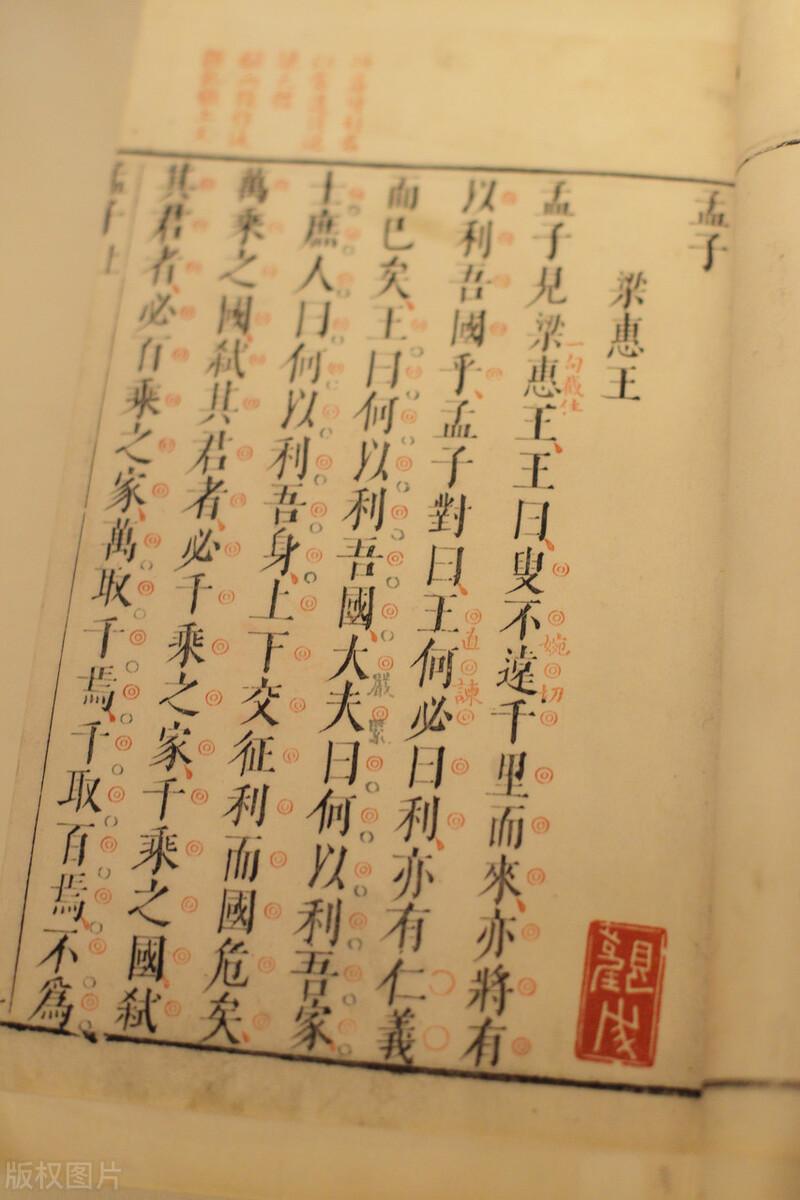 孟子
梁惠王
孟子見梁惠王、王曰、叟不遠千里而來、亦將有
一句截住
婉切
以利吾國乎、孟子對曰、王何必曰利、亦有仁義
直諫
而已矣、王曰何以利吾國、大夫曰何以利吾家、
嚴緊
士庶人曰何以利吾身、上下交征利而國危矣、
萬乘之國、弒其君者、必千乘之家、千乘之國、弒
其君者、必百乘之家、萬取千焉、千取百焉、不爲
孟子上
版权图片